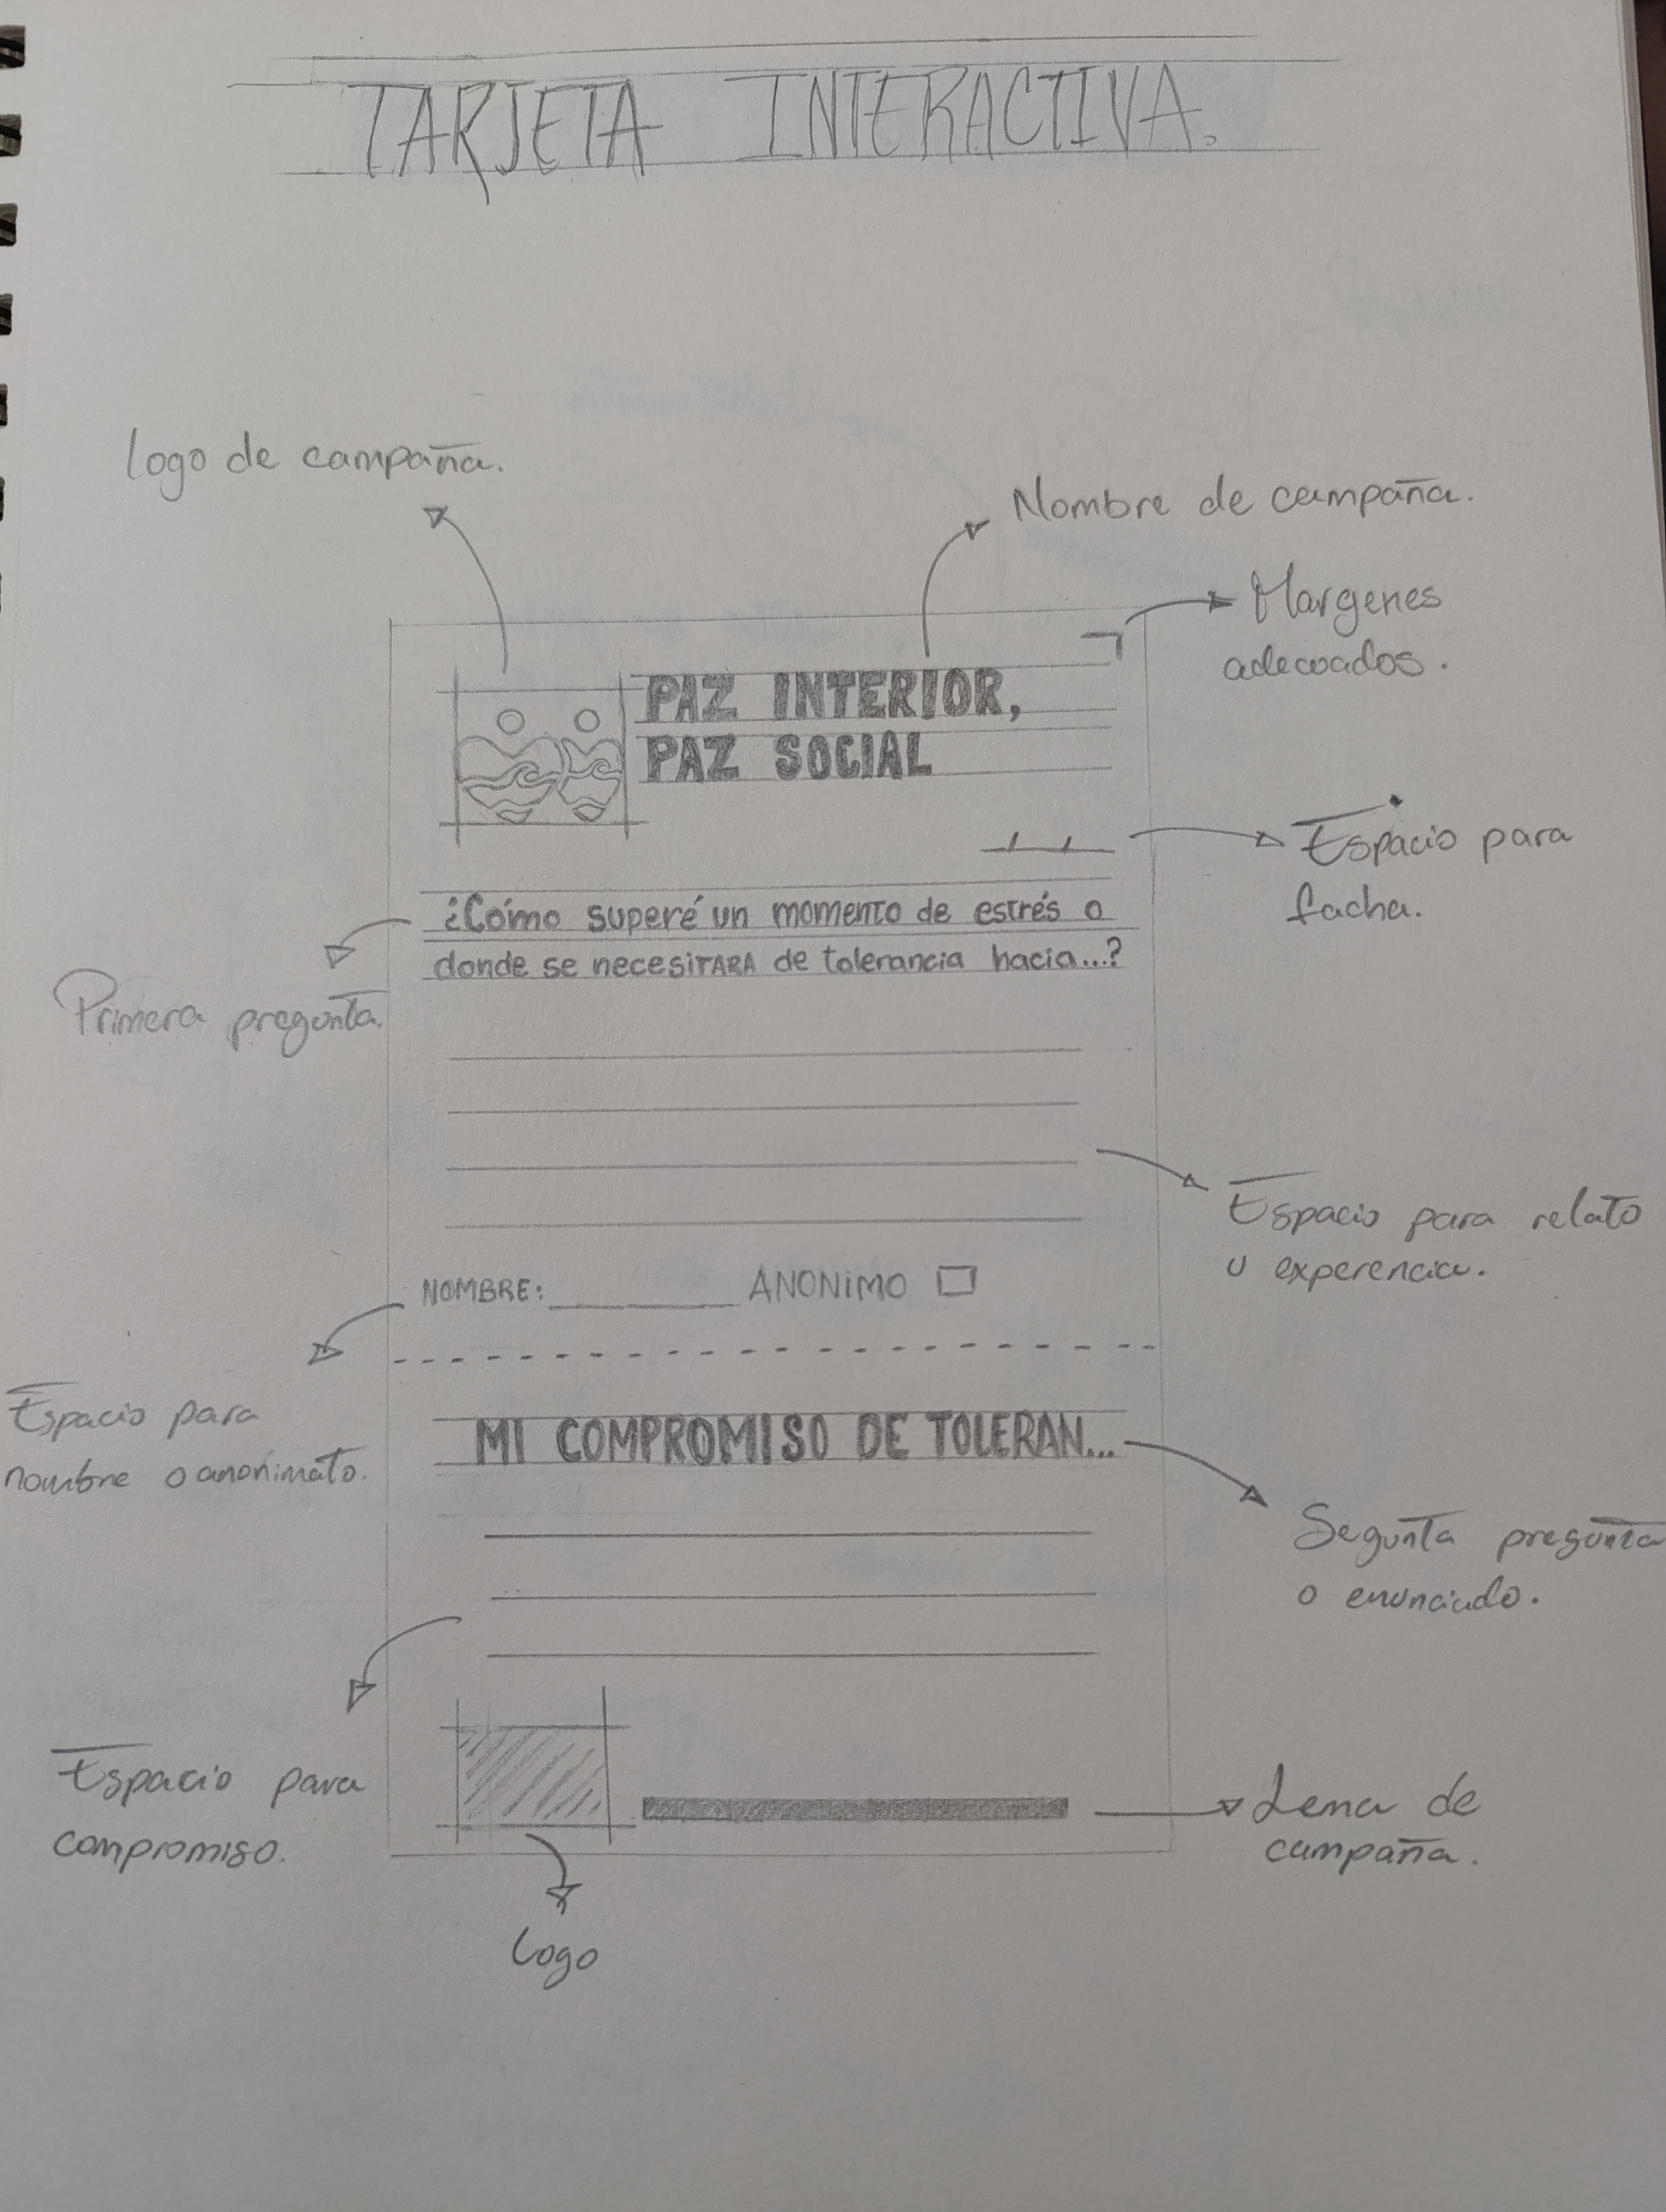 TARJETA INTERACTIVA.
logo de campaña.
Nombre de campaña.
Margenes
adecuados.
PAZ INTERIOR,
PAZ SOCIAL
Espacio para
facha.
¿Cómo superé un momento de estrés o
donde se necesitARA de tolerancia hacia...?
Primera pregunta.
Espacio para relato
u experencia.
NOMBRE: ________ ANONIMO
Espacio para
nombre o anonimato.
MI COMPROMISO DE TOLERAN...
Segunta pregunta
o enunciado.
Espacio para
compromiso.
Lema de
campaña.
logo